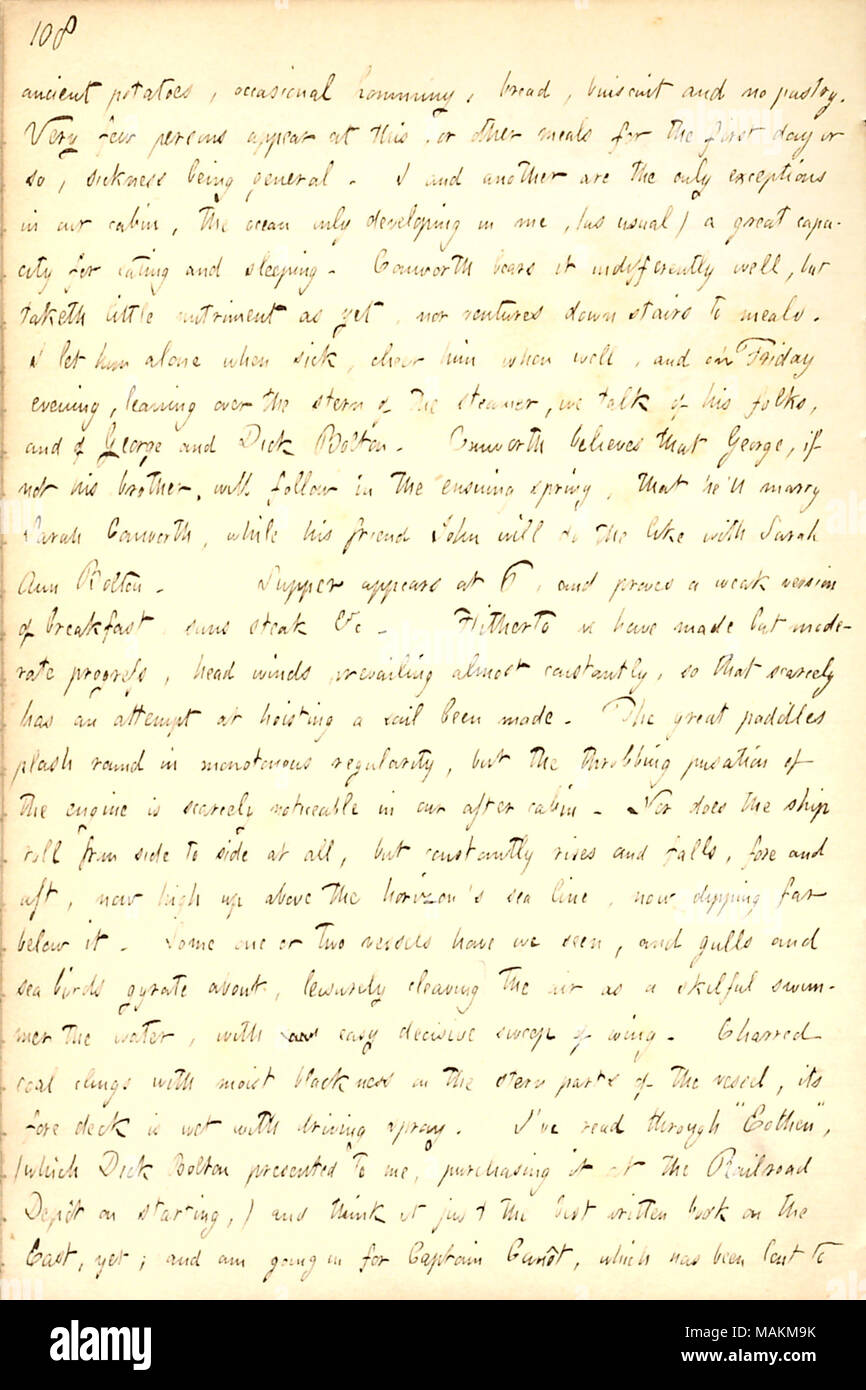 108
ancient potatoes, occasional hommimy, bread, buiscuit and no pastry.
Very few persons appear at this, or other meals for the first day or
so, sickness being general. I and another are the only exceptions
in our cabin, the ocean only developing in me, (as usual) a great capa-
city for eating and sleeping. Conworth bears it indifferently well, but
taketh little nutriment as yet, nor ventures down stairs to meals.
I let him alone when sick, cheer him when well, and on Friday
evening, leaning over the stern of the steamer, we talk of his folks,
and of George and Dick Bolton. Conworth believes that George, if
not his brother, will follow in the ensuing spring, that he'll marry
Sarah Conworth, while his friend John will do the like with Sarah
Ann Bolton. Supper appears at 6, and proves a weak version
of breakfast, sans steak &c. Hitherto we have made but mode-
rate progress, head winds prevailing almost constantly, so that scarcely
has an attempt at hoisting a sail been made. The great paddles
plash round in monotonous regularity, but the throbbing pusation of
the engine is scarcely noticeable in our after cabin. Nor does the ship
roll from side to side at all, but constantly rises and falls, fore and
aft, now high up above the horizon's sea line, now dipping far
below it. Some one or two vessels have we seen, and gulls and
sea birds gyrate about, leisurely cleaving the air as a skilful swim-
mer the water, with easy decisive sweep of wing. Charred
coal clings with moist blackness on the stern parts of the vessel, its
fore deck is wet with driving spray. I've read through "Eothen",
(which Dick Bolton presented to me, purchasing it at the Railroad
Depôt on starting,) and think it just the best written book on the
East, yet; and am going in for Captain Canot, which has been lent to
alamy
Image ID: MAKM9K
www.alamy.com